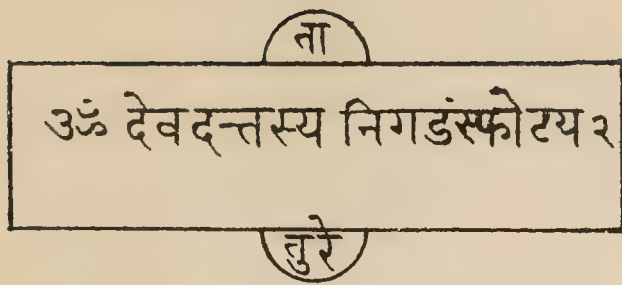 ता
ॐ देवदत्तस्य निगडंस्फोटय २
तुरे